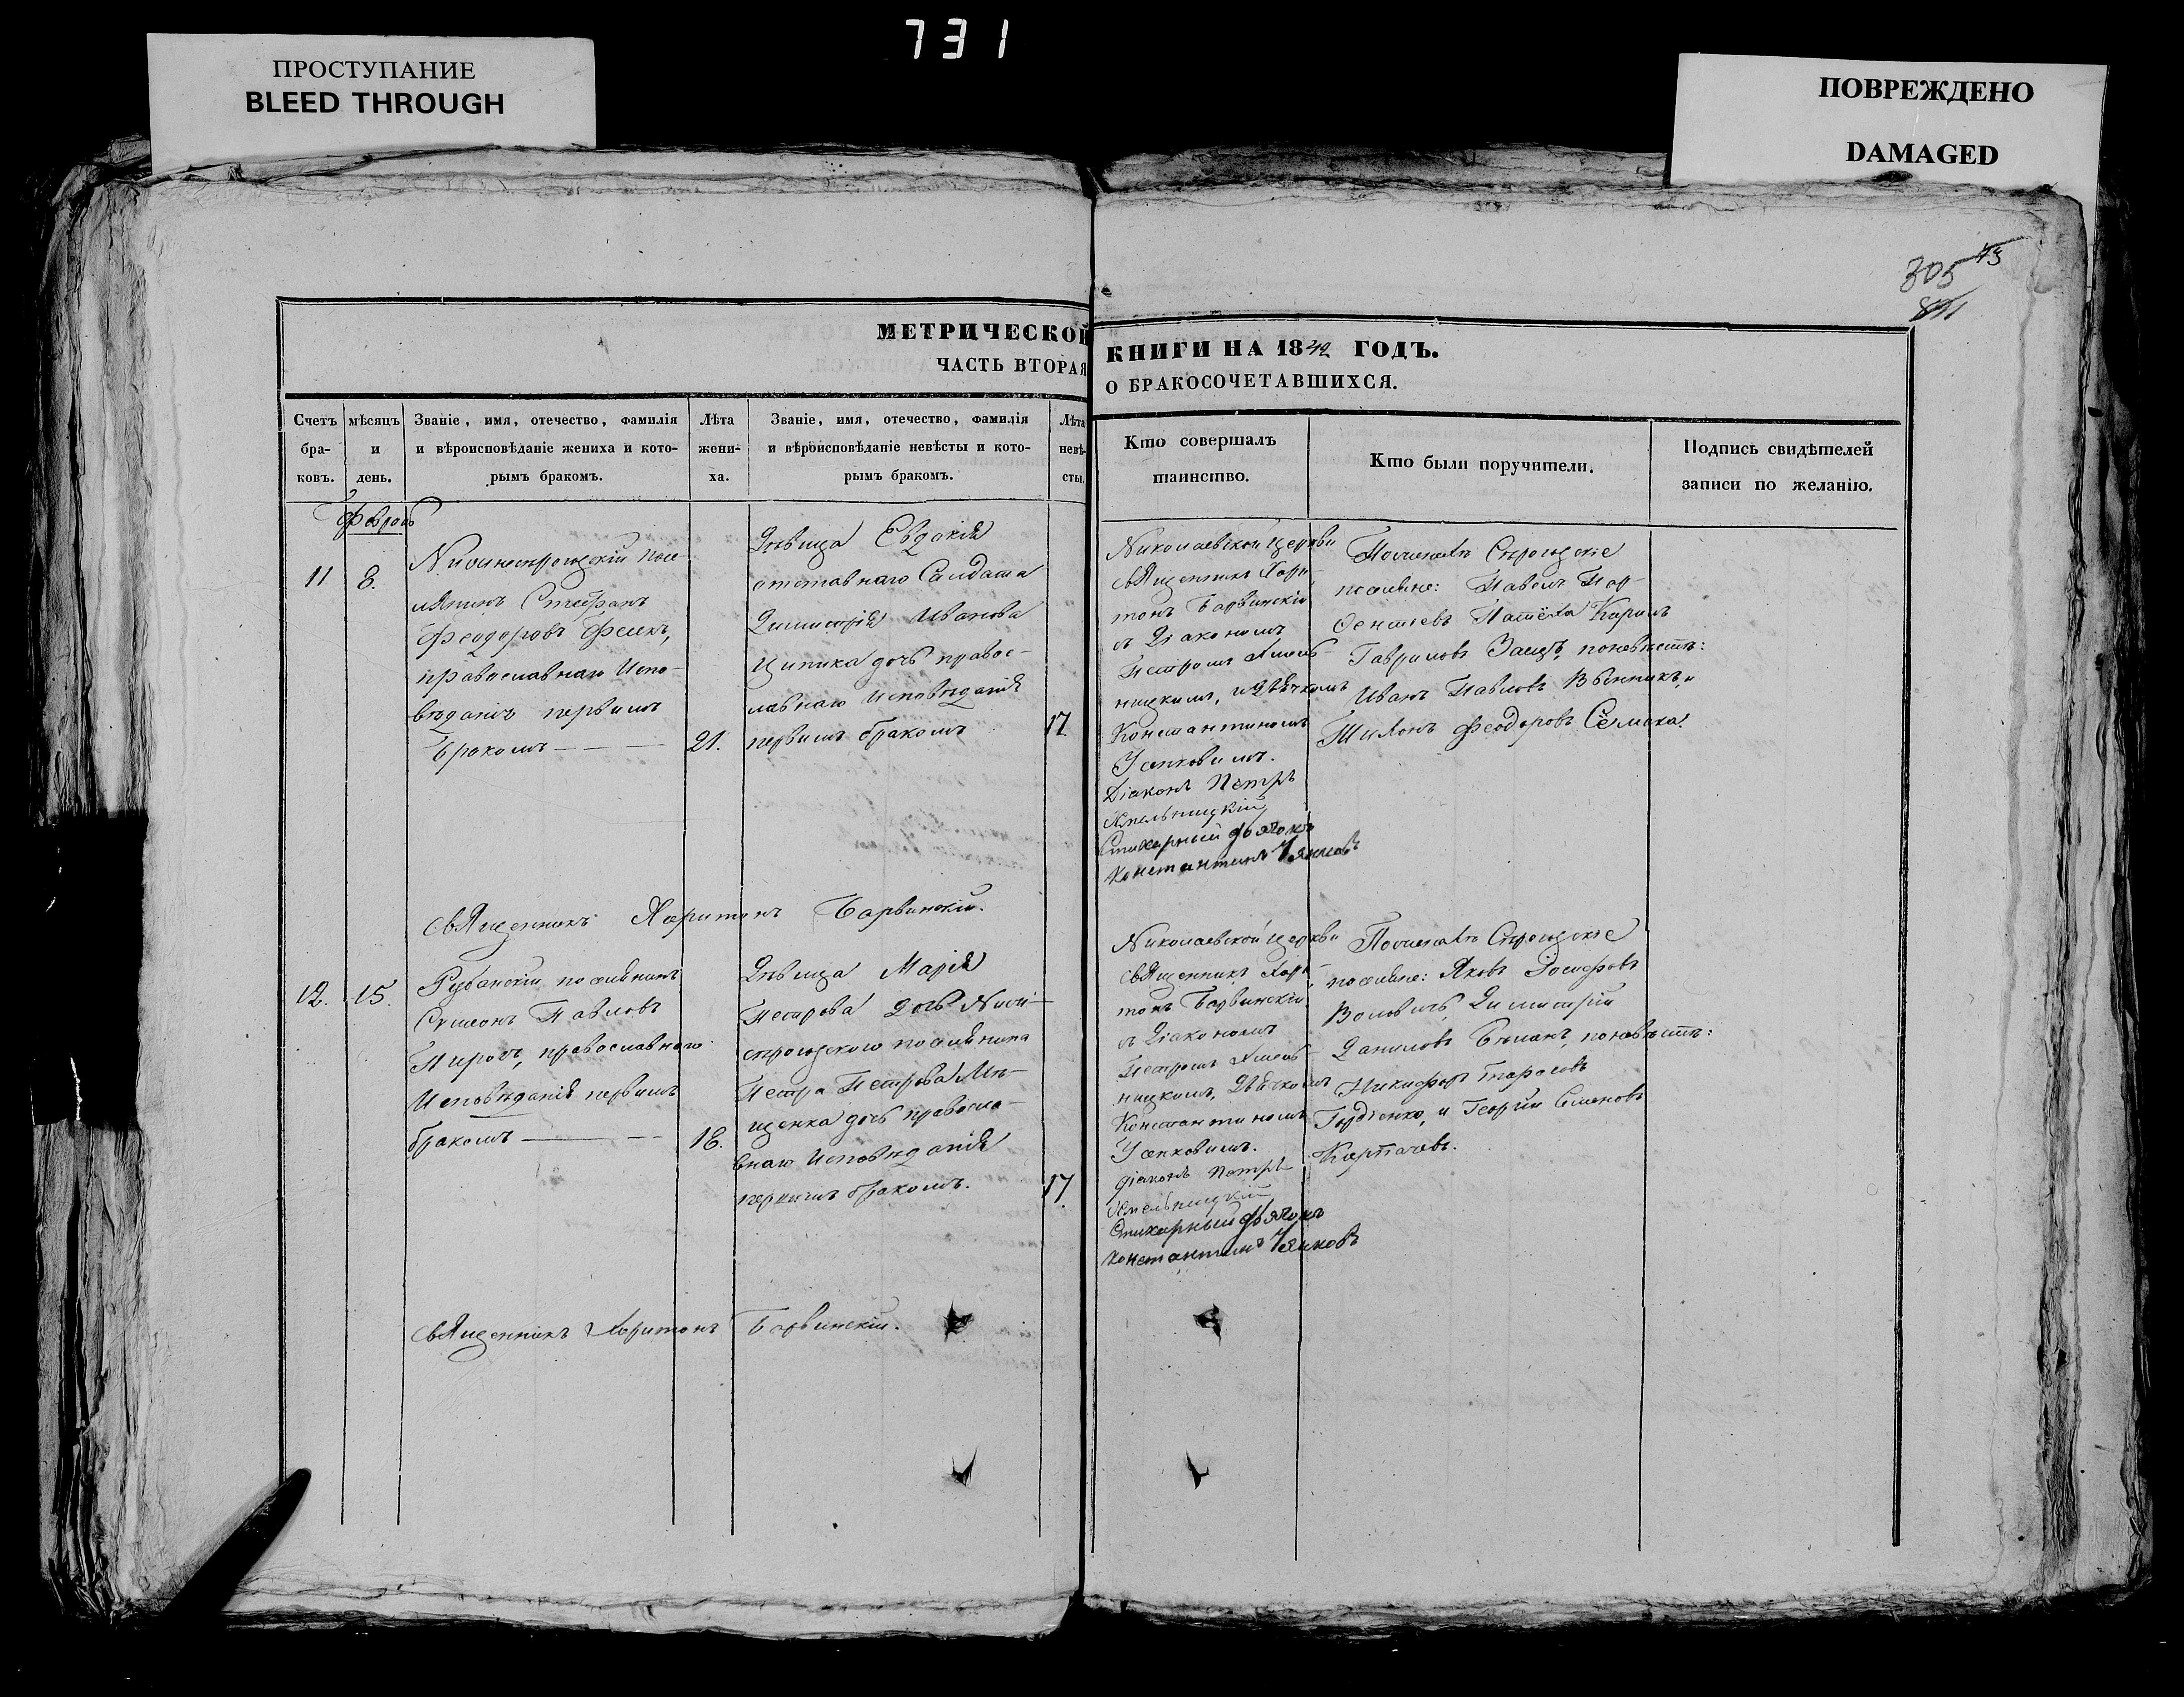 731
ПРОСТУПАНИЕ
BLEED THROUGH
ПОВРЕЖДЕНО
DAMAGED
305
МЕТРИЧЕСКОЙ
ЧАСТЬ ВТОРАЯ
КНИГИ НА 1842 ГОДЪ.
О БРАКОСОЧЕТАВШИХСЯ.
Счетъ бра-ковъ.
мѣсяцъ и день.
Званіе, имя, отечество, фамилія
и вѣроисповѣданіе жениха и кото-
рымъ бракомъ.
Лѣта жени-ха.
Званіе, имя, отечество, фамилія
и вѣроисповѣданіе невѣсты и кото-
рымъ бракомъ.
Лѣта невѣ-сты.
Кто совершалъ
таинство.
Кто были поручители.
Подпись свидѣтелей
записи по желанію.
11
8.
лянинъ Стефанъ
Феодоровъ
православнаго Испо-
вѣданія первымъ
бракомъ
21.
Дѣвица Евдокія
отставнаго Солдата
Димитрія Иванова
Ципика дочь правос-
лавнаго Исповѣданія
первымъ бракомъ
17
Николаевской церкви
священникъ Хари-
тонъ Барвинскій
съ Діакономъ
Петромъ Хмель-
ницкимъ, и Дьячкомъ
Константиномъ
Усенковимъ.
Діаконъ Петръ
Хмельницкій
Стихарный дьячокъ
Константинъ
поселяне: Павелъ Пар-
Гавриловъ Заецъ, по невѣстѣ:
Иванъ Павловъ
Тихонъ Феодоровъ
священникъ Харитонъ Барвинскій.
12.
15.
Рубанскій поселянинъ
Симеонъ Павловъ
православнаго
Исповѣданія первымъ
бракомъ
18.
Дѣвица Марія
Петрова дочь
строгозского поселянина
Петра Петрова
щенка дочь правосла-
внаго Исповѣданія
первымъ бракомъ.
17.
Николаевской церкви
священникъ Хари-
тонъ Барвинскій
съ Діакономъ
Петромъ Хмель-
ницкимъ, Дьячкомъ
Константиномъ
Усенковимъ.
діаконъ Петръ
Хмельницкій
Стихарный дьячокъ
Константинъ
поселяне: Яковъ Іосифовъ
Димитрій
Даниловъ по невѣстѣ:
Никифоръ Тарасовъ
Гордіенко, и Георгій Семеновъ
священникъ Харитонъ Барвинскій.